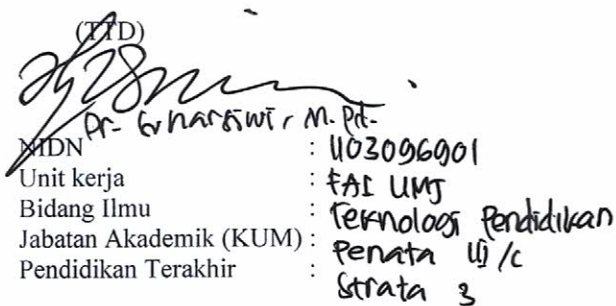 (TTD)
Dr. Sunarsiwi, M. Pd.
NIDN : 1103096901
Unit kerja : FAI UMJ
Bidang Ilmu : Teknologi Pendidikan
Jabatan Akademik (KUM) : Penata III/c
Pendidikan Terakhir : Strata 3